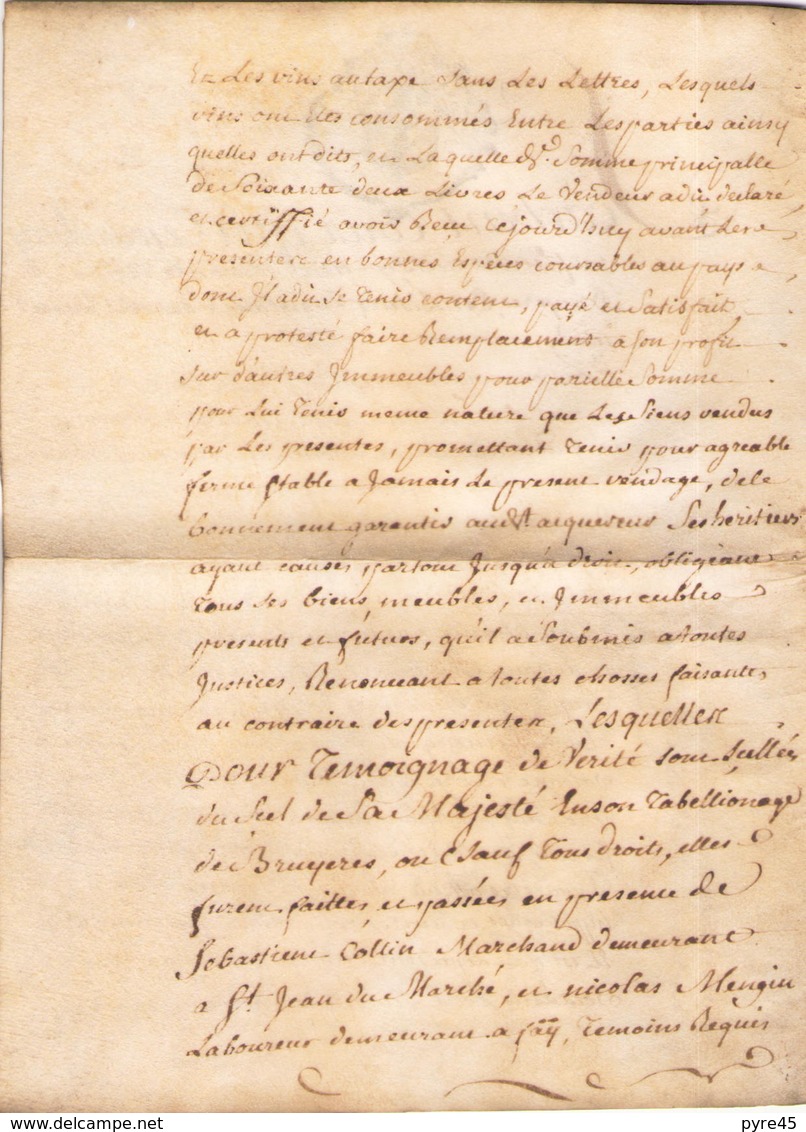 Et Les vins au taxe sans Les Lettres, Lesquels
vins ont etes consommés Entre Les parties ainsy
quelles ont dits, et Laquelle Somme principalle
de Soixante deux Livres Le Vendeur a dit declaré
et certiffié avoir Reçu Cejourd'huy avant Les
presentes en bonnes Espèces coursables au pays
dont Il a dit se Tenir content, payé et Satisfait,
et a protesté faire Remplacement a Son profit
sur d'autres Immeubles pour parielle Somme
pour Lui Tenir meme nature que Les Siens vendus
par Les presentes, promettant Tenir pour agreable
ferme stable a Jamais Le present vendage, de le
bonnement garantir audt acquereur Ses heritiers
ayant causes partout Jusqu'a droit, obligeant
Tous Ses biens, meubles, et Immeubles
presents et futurs, qu'il a Soubmis a toutes
Justices, Renoncant a toutes chosses faisantes
au contraire des presentes, Lesquelles
Pour Temoignage de Verité sont Scellées
du Seel de Sa Majesté En son Tabellionage
de Bruyeres, Sauf Tous droits, elles
furent faittes et passées en presence de
Sebastient Collin Marchand demeurant
a St. Jean du Marché, et nicolas Mengin
Laboureur demeurant a fayy, Temoins Requis
pyre45